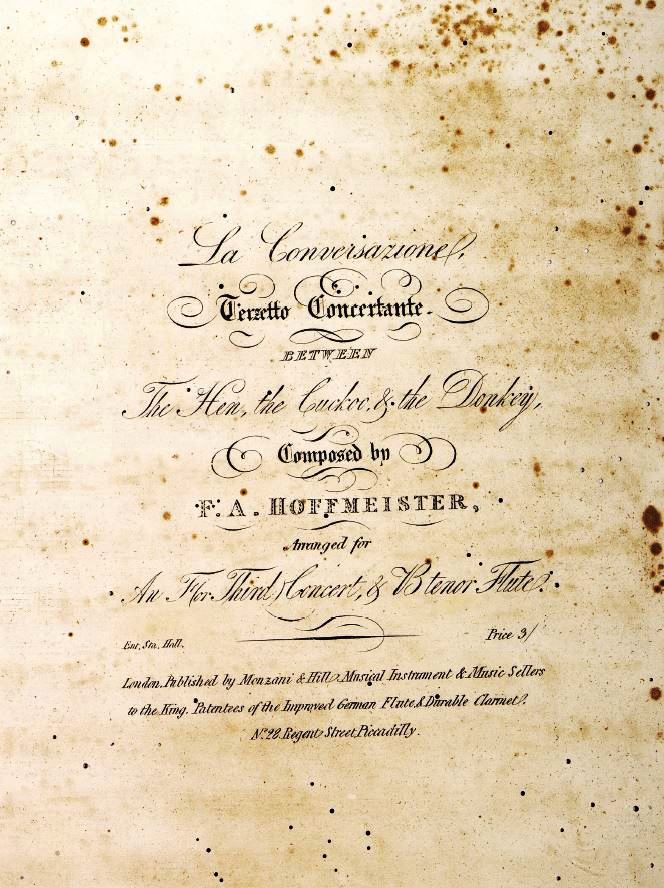 La Conversazione,
Terzetto Concertante.
BETWEEN
The Hen, the Cuckoo, & the Donkey,
Composed by
F. A. HOFFMEISTER,
Arranged for
An F (or Third) Concert, & B tenor Flute.
Ent. Sta. Hall. Price 3/
London. Published by Monzani & Hill. Musical Instrument & Music Sellers
to the King. Patentees of the Improved German Flute, & Durable Clarinet.
No. 28 Regent Street, Piccadilly.